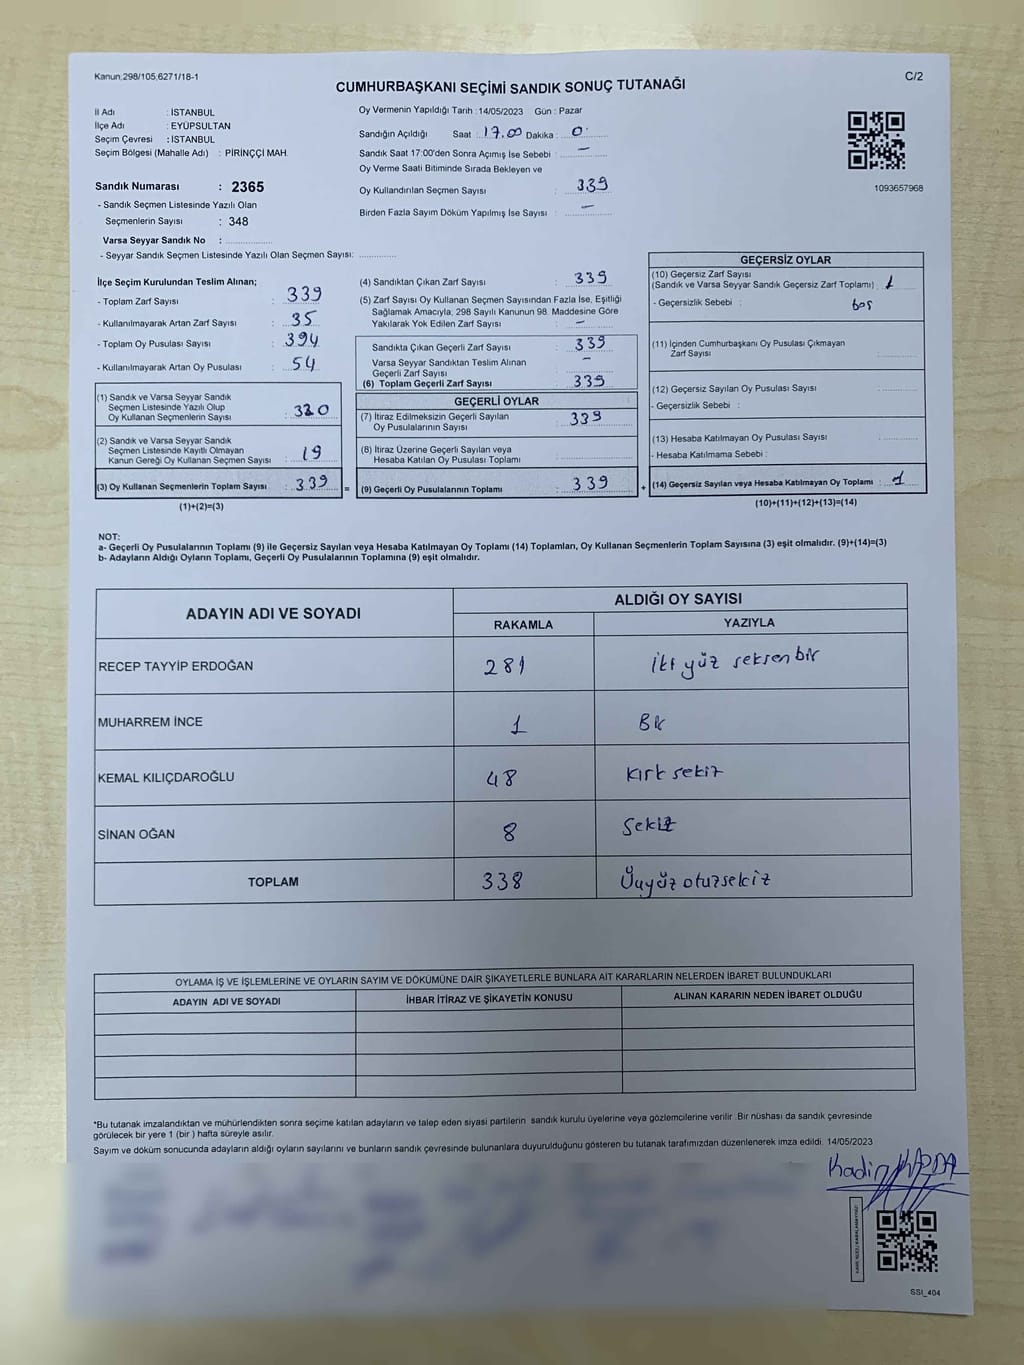 Kanun:298/105,6271/18-1
C/2
CUMHURBAŞKANI SEÇİMİ SANDIK SONUÇ TUTANAĞI
İl Adı : İSTANBUL
İlçe Adı : EYÜPSULTAN
Seçim Çevresi : İSTANBUL
Seçim Bölgesi (Mahalle Adı) : PİRİNÇÇİ MAH.
Sandık Numarası : 2365
- Sandık Seçmen Listesinde Yazılı Olan
Seçmenlerin Sayısı : 348
Varsa Seyyar Sandık No :
- Seyyar Sandık Seçmen Listesinde Yazılı Olan Seçmen Sayısı:
Oy Vermenin Yapıldığı Tarih :14/05/2023 Gün : Pazar
Sandığın Açıldığı Saat : 17.00 Dakika : 0
Sandık Saat 17:00'den Sonra Açımış İse Sebebi : —
Oy Verme Saati Bitiminde Sırada Bekleyen ve
Oy Kullandırılan Seçmen Sayısı : 339
Birden Fazla Sayım Döküm Yapılmış İse Sayısı : —
1093657968
İlçe Seçim Kurulundan Teslim Alınan;
- Toplam Zarf Sayısı : 339
- Kullanılmayarak Artan Zarf Sayısı : 35
- Toplam Oy Pusulası Sayısı : 394
- Kullanılmayarak Artan Oy Pusulası : 54
(1) Sandık ve Varsa Seyyar Sandık
Seçmen Listesinde Yazılı Olup
Oy Kullanan Seçmenlerin Sayısı : 320
(2) Sandık ve Varsa Seyyar Sandık
Seçmen Listesinde Kayıtlı Olmayan
Kanun Gereği Oy Kullanan Seçmen Sayısı : 19
(3) Oy Kullanan Seçmenlerin Toplam Sayısı : 339
(1)+(2)=(3)
=
(4) Sandıktan Çıkan Zarf Sayısı : 339
(5) Zarf Sayısı Oy Kullanan Seçmen Sayısından Fazla İse, Eşitliği
Sağlamak Amacıyla, 298 Sayılı Kanunun 98. Maddesine Göre
Yakılarak Yok Edilen Zarf Sayısı : —
Sandıkta Çıkan Geçerli Zarf Sayısı : 339
Varsa Seyyar Sandıktan Teslim Alınan —
Geçerli Zarf Sayısı
(6) Toplam Geçerli Zarf Sayısı : 339
GEÇERLİ OYLAR
(7) İtiraz Edilmeksizin Geçerli Sayılan
Oy Pusulalarının Sayısı : 339
(8) İtiraz Üzerine Geçerli Sayılan veya
Hesaba Katılan Oy Pusulası Toplamı :
(9) Geçerli Oy Pusulalarının Toplamı : 339
+
GEÇERSİZ OYLAR
(10) Geçersiz Zarf Sayısı
(Sandık ve Varsa Seyyar Sandık Geçersiz Zarf Toplamı) : 1
- Geçersizlik Sebebi : boş
(11) İçinden Cumhurbaşkanı Oy Pusulası Çıkmayan
Zarf Sayısı :
(12) Geçersiz Sayılan Oy Pusulası Sayısı :
- Geçersizlik Sebebi :
(13) Hesaba Katılmayan Oy Pusulası Sayısı :
- Hesaba Katılmama Sebebi :
(14) Geçersiz Sayılan veya Hesaba Katılmayan Oy Toplamı : 1
(10)+(11)+(12)+(13)=(14)
NOT:
a- Geçerli Oy Pusulalarının Toplamı (9) ile Geçersiz Sayılan veya Hesaba Katılmayan Oy Toplamı (14) Toplamları, Oy Kullanan Seçmenlerin Toplam Sayısına (3) eşit olmalıdır. (9)+(14)=(3)
b- Adayların Aldığı Oyların Toplamı, Geçerli Oy Pusulalarının Toplamına (9) eşit olmalıdır.
ADAYIN ADI VE SOYADI
ALDIĞI OY SAYISI
RAKAMLA YAZIYLA
RECEP TAYYİP ERDOĞAN 281 iki yüz seksen bir
MUHARREM İNCE 1 Bir
KEMAL KILIÇDAROĞLU 48 kırk sekiz
SİNAN OĞAN 8 Sekiz
TOPLAM 338 Üçyüz otuzsekiz
OYLAMA İŞ VE İŞLEMLERİNE VE OYLARIN SAYIM VE DÖKÜMÜNE DAİR ŞİKAYETLERLE BUNLARA AİT KARARLARIN NELERDEN İBARET BULUNDUKLARI
ADAYIN ADI VE SOYADI İHBAR İTİRAZ VE ŞİKAYETİN KONUSU ALINAN KARARIN NEDEN İBARET OLDUĞU
*Bu tutanak imzalandıktan ve mühürlendikten sonra seçime katılan adayların ve talep eden siyasi partilerin sandık kurulu üyelerine veya gözlemcilerine verilir. Bir nüshası da sandık çevresinde
görülecek bir yere 1 (bir ) hafta süreyle asılır.
Sayım ve döküm sonucunda adayların aldığı oyların sayılarını ve bunların sandık çevresinde bulunanlara duyurulduğunu gösteren bu tutanak tarafımızdan düzenlenerek imza edildi. 14/05/2023
Kadir
SSI_404